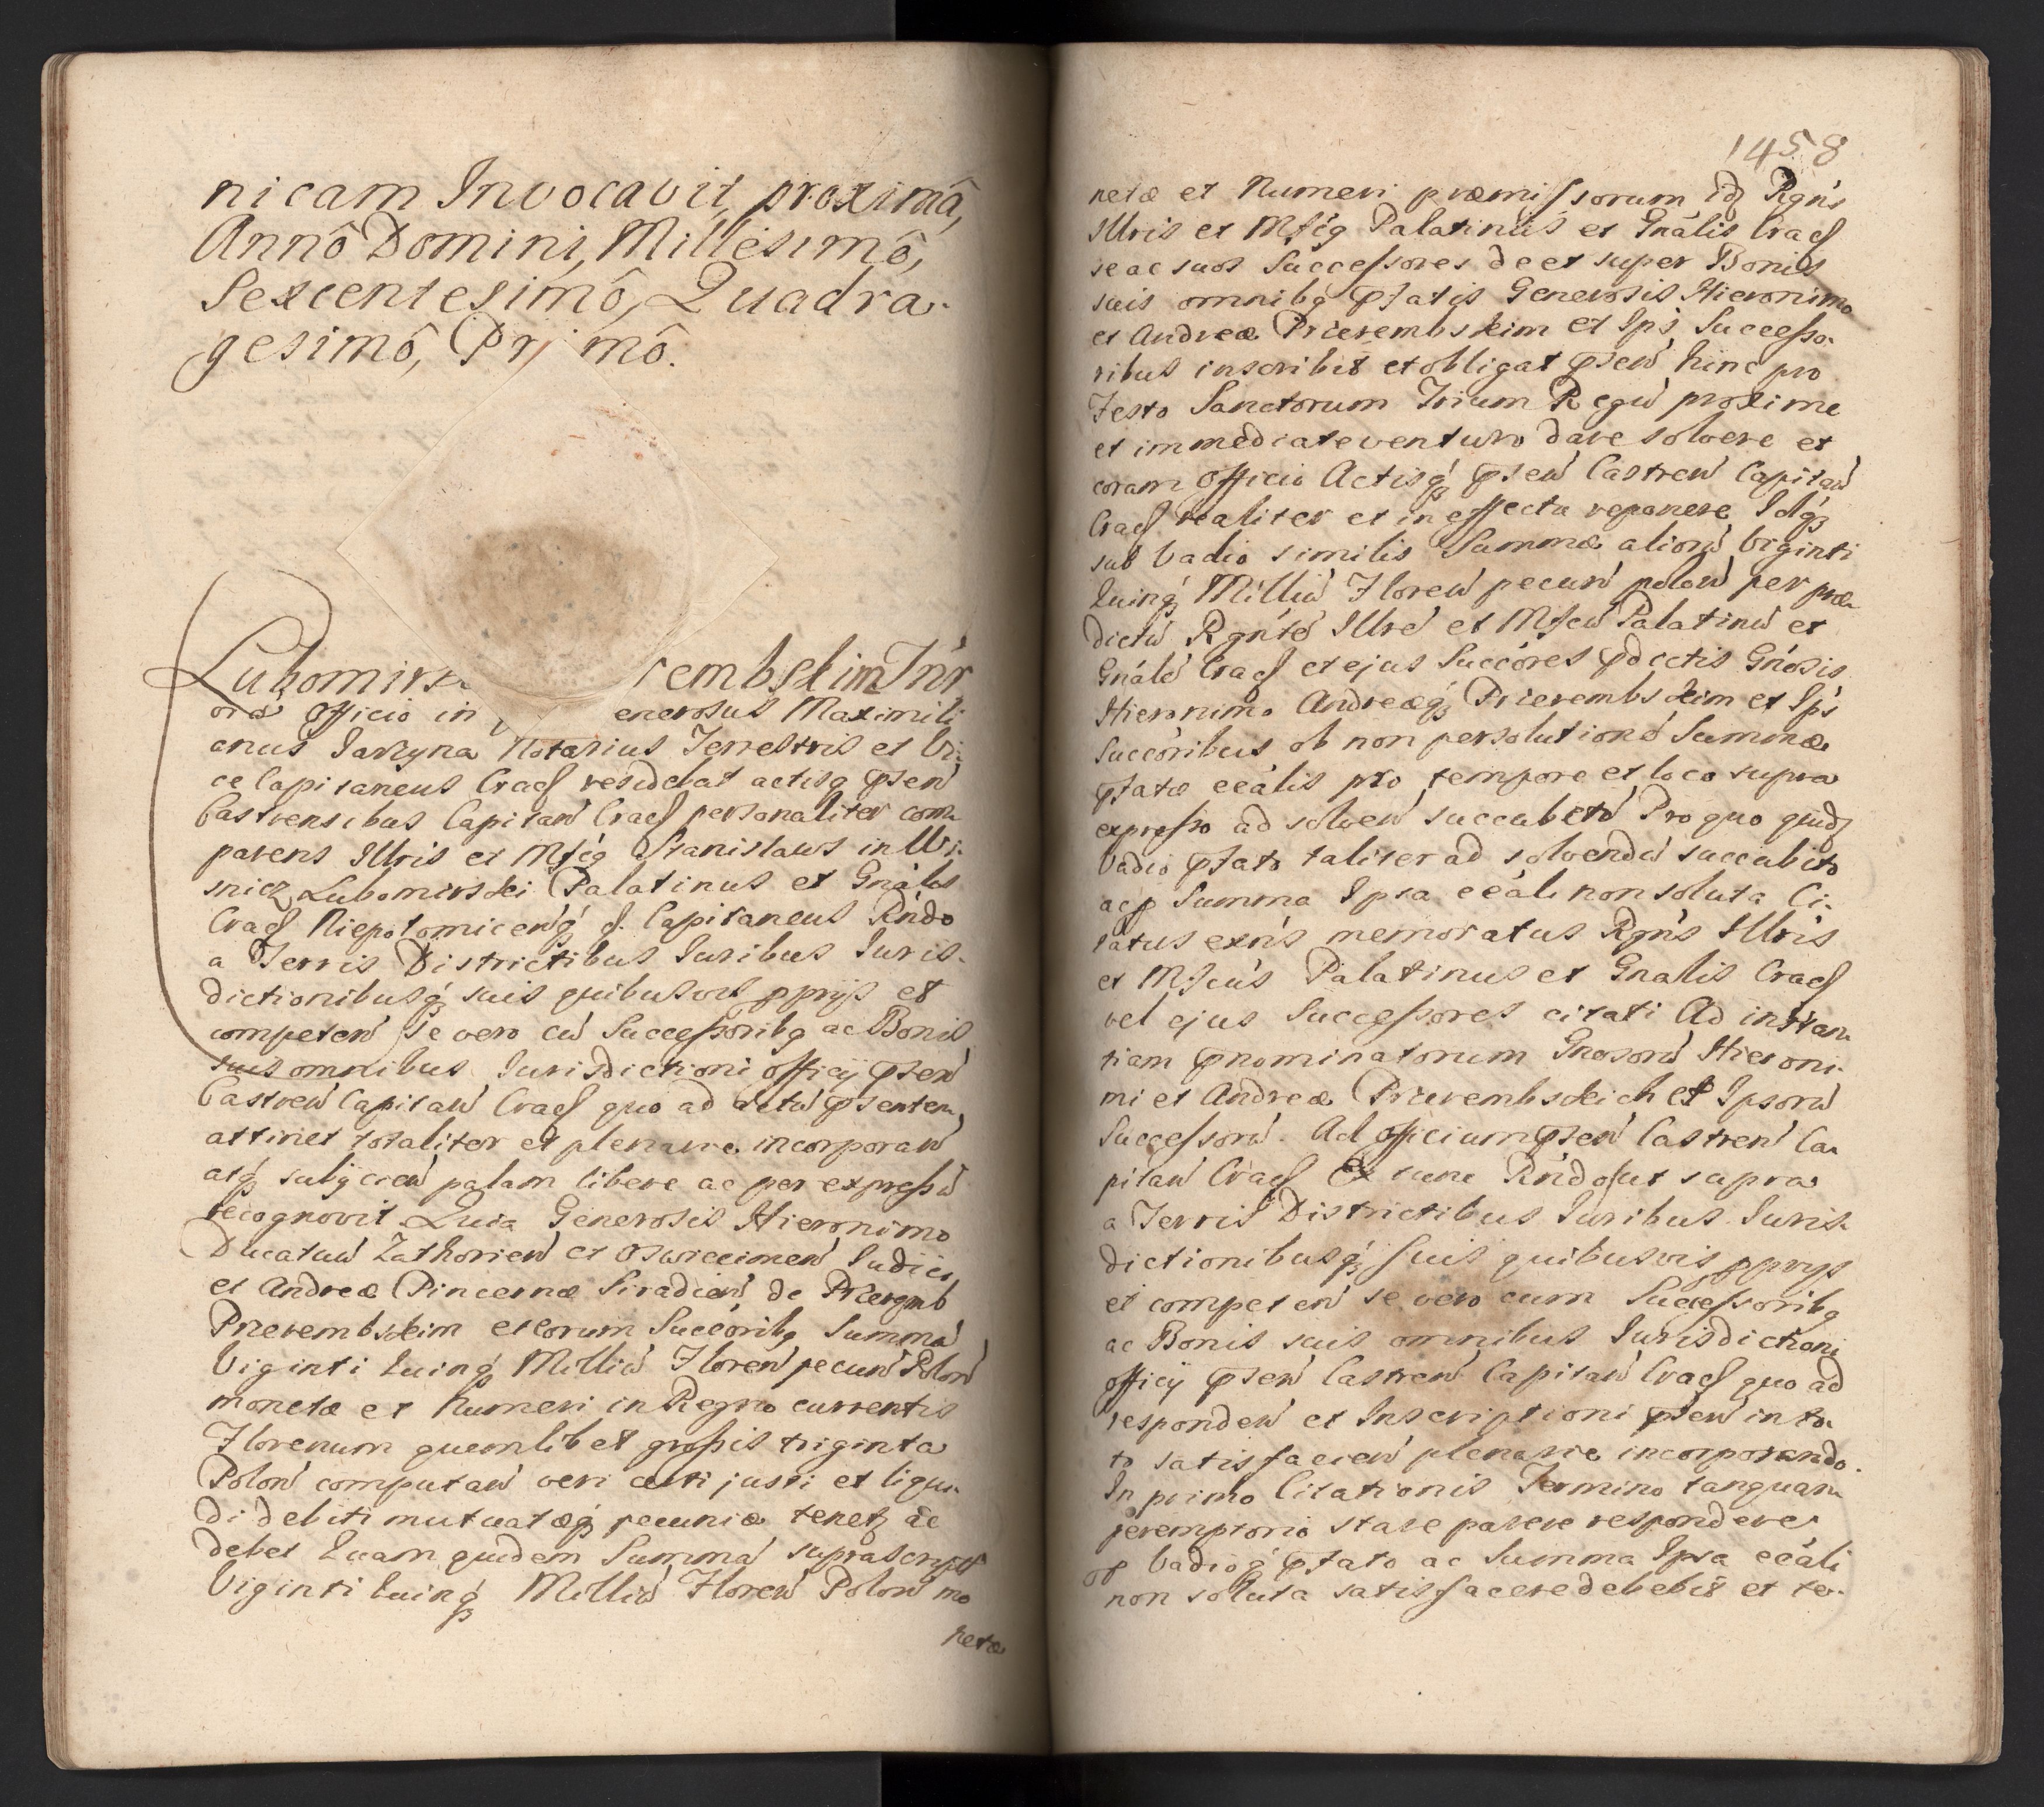 nicam Invocavit proximâ,
Annô Domini, Millesimô,
Sexcentesimô, Quadra-
gesimô, Pri mô.
Lubomirs rembskim Inr
ora officio in enerosus Maximili
anus Jarzyna Notarius Terrestris et Vi-
ce Capitaneus Crac residebat actisq pṡen
Castrensibus Capitan Crac personaliter com-
parens Illris et Mfiq Stanislaus in Wi-
snicz Lubomirski Palatinus et Gnalis
Crac Niepolomicenq & Capitaneus Rndo
a Terris Districtibus Iuribus Iuris-
dictionibusq suis quibusvis pprijs et
competen Se vero cu Successoribq ac Bonis
suis omnibus Iurisdictioni officij pṡen
Castren Capitan Crac quo ad actu pṡentem
attinet totaliter et plenarie incorporan
atq subijcien palam libere ac per expressu
recognovit Quia Generosis Hieronimo
Ducatuu Zathorien et Oswiecimen Iudici
et Andreæ Pincernæ Siradien de Przeremb
Przerembskim et eorum Succoribq Summa
Viginti Quinq Milliu Floren pecun Polon
monetæ et Numeri in Regno currentis
Florenum quemlibet grossis triginta
Polon computan veri certi justi et liqui-
di debiti mutuatæq pecuniæ tenetq ac
debet Quam quidem Summa suprascripta
Viginti Quinq Milliu Floren Polon mo
netæ
1458
netæ et Numeri præmissorum idq Rgns
Illris et Mfiq Palatinus et Gnalis Crac
se ac suos Successores de et super Bonis
suis omnibq pfatis Generosis Hieronimo
et Andreæ Przerembskim et Ips Successo-
ribus inscribit et obligat pṡen hinc pro
Festo Sanctorum Trium Regu proxime
et immediate venturo dare solvere et
coram Officio Actisq pṡen Castren Capitan
Crac realiter et in effectu reponere Idq
sub Vadio similis Summæ alioru Viginti
Quinq Milliu Floren pecun polon per præ-
dictu Rgnte Illre et Mfcu Palatinu et
Gnale Crac et ejus Succores pdictis Gnosis
Hieronimo Andreæq Przerembskim et Ips
Succoribus ob non persolutione Summæ
pfatæ ccalis pro tempore et loco supra
expresso ad solven succubito Pro quo quidq
Vadio pfato taliter ad solvendu succubito
acp Summa Ipsa ccali non soluta Ci-
tatus exns memoratus Rgns Illris
et Mfcus Palatinus et Gnalis Crac
vel ejus Successores citati Ad instan-
tiam pnominatorum Gnosoru Hieroni-
mi et Andreæ Przerembskich et Ipsoru
Successoru Ad officium pṡen Castren Ca-
pitan Crac Ex tunc Rndo ut supra
a Terris Districtibus Iuribus Iuris-
dictionibusq suis quibusvis pprijs
et competen se vero cum Successoribq
ac Bonis suis omnibus Iurisdictioni
officij pṡen Castren Capitan Crac quo ad
responden et Inscriptioni pṡen in to-
to satisfacien plenarie incorporando.
In primo Citationis Termino tanquam
peremptorio stare parere respondere
Vadioq pfato ac Summa Ipsa ccali
non soluta satisfacere debebit et te-